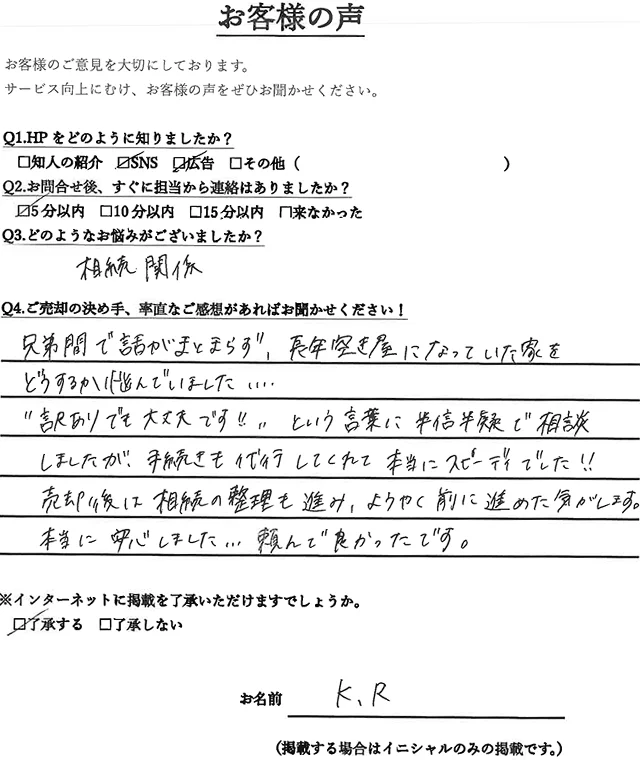 お客様の声
お客様のご意見を大切にしております。
サービス向上にむけ、お客様の声をぜひお聞かせください。
Q1.HPをどのように知りましたか？
□知人の紹介 ☑SNS ☑広告 □その他（ ）
Q2.お問合せ後、すぐに担当から連絡はありましたか？
☑5分以内 □10分以内 □15分以内 □来なかった
Q3.どのようなお悩みがございましたか？
相続関係
Q4.ご売却の決め手、率直なご感想があればお聞かせください！
兄弟間で話がまとまらず、長年空き屋になっていた家を
どうするか悩んでいました....
"訳ありでも大丈夫です!!"という言葉に半信半疑で相談
しましたが、手続きも代行してくれて本当にスピーディでした!!
売却後は相続の整理も進み、ようやく前に進めた気がします。
本当に安心しました... 頼んで良かったです。
※インターネットに掲載を了承いただけますでしょうか。
☑了承する □了承しない
お名前 K、R
（掲載する場合はイニシャルのみの掲載です。）